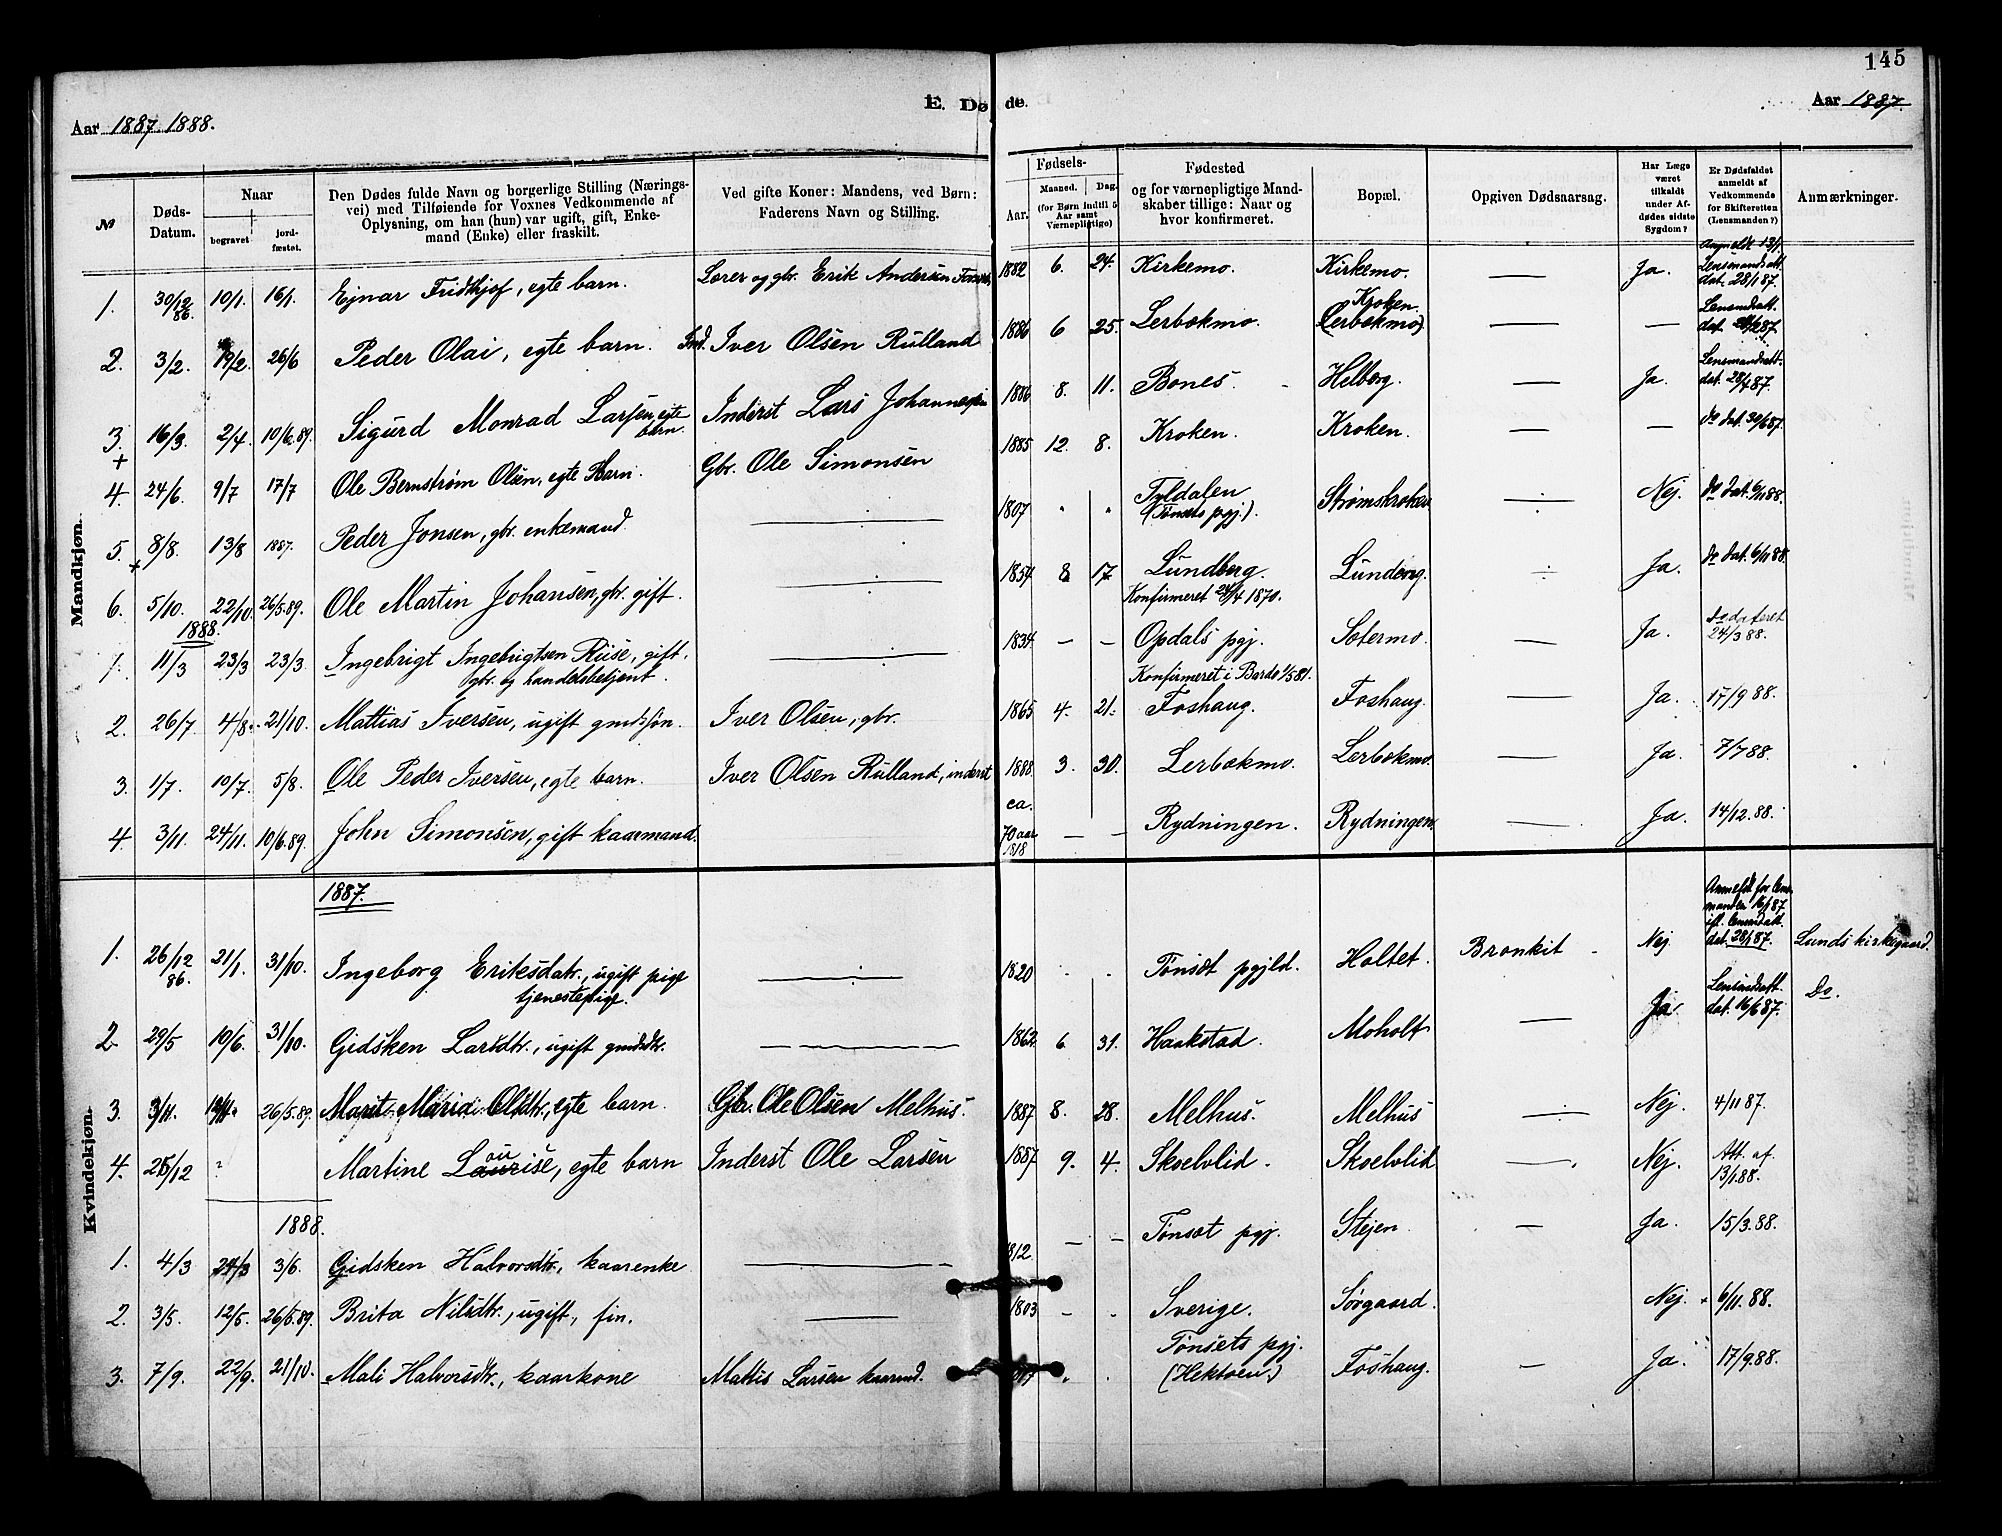 145
E. Dø de.
Aar 1887 1888.
Aar 1887.
№
Døds-Datum.
Naar
begravet
jord-fæstet.
Den Dødes fulde Navn og borgerlige Stilling (Nærings-
vei) med Tilføiende for Voxnes Vedkommende af
Oplysning, om han (hun) var ugift, gift, Enke-
mand (Enke) eller fraskilt.
Ved gifte Koner: Mandens, ved Børn:
Faderens Navn og Stilling.
Fødsels-
Aar.
Maaned.
Dag.
(for Børn indtil 5
Aar samt
Værnepligtige)
Fødested
og for værnepligtige Mand-
skaber tillige: Naar og
hvor konfirmeret.
Bopæl.
Opgiven Dødsaarsag.
Har Læge
været
tilkaldt
under Af-
dødes sidste
Sygdom?
Er Dødsfaldet
anmeldt af
Vedkommende
for Skifteretten
(Lensmanden?)
Anmærkninger.
Mandkjøn.
1. 30/12 86. 10/1. 16/1. Ejnar Fridthjof, egte barn. Lærer og gbr. Erik Andersen 1882 6. 24. Kirkemo. Kirkemo. — Ja. Lensmandsatt. dat. 28/1 87.
2. 3/2. 19/2. 26/6 Peder Olai, egte barn. Ind. Iver Olsen Rulland 1886 6 25. Lerbækmo. Kroken (Lerbækmo) — — Lensmdsatt. dat. 87.
3. + 16/3. 2/4. 10/6.89. Sigurd Monrad Larsen, egte barn. Inderst Lars Johannesen 1886 8. 11. Bones. Helberg. — Ja. Lensmandsatt. dat. 28/4 87.
4. 24/6. 9/7 17/7 Ole Bernstrøm Olsen, egte Barn. Gbr. Ole Simonsen 1885 12. 8. Kroken. Kroken. — — do dat. 30/6 87.
5. + 8/8. 13/8 1887. Peder Jonsen, gbr. enkemand. —:— 1807 " " Tyldalen (Tønsets pgj.). Strømskroken —:— Nej. do dat. 6/11 88.
6. 5/10. 22/10. 26/5.89. Ole Martin Johansen, gbr. gift. —:— 1854 8 17 Lundberg. Konfirmeret 24/4 1870. Lundberg. —:— Ja. do dat. 6/11 88.
1888.
1. 11/3 23/3 23/3. Ingebrigt Ingebrigtsen Riise, gift. gbr. og handelsbetjent. —:— 1834 — — Opdals pgj. Sætermo. — Ja. Do dateret 24/3 88.
2. 26/7 4/8. 21/10. Mattias Iversen, ugift gmdssøn. Iver Olsen, gbr. 1865 4. 21. Konfirmeret i Bardo 1/5 81. Foshaug. Foshaug. — Ja. 17/9 88.
3. 1/7. 10/7. 5/8. Ole Peder Iversen, egte barn. Iver Olsen Rulland, inderst 1888 3. 30. Lerbækmo. Lerbækmo. — Ja. 7/7 88.
4. 3/11. 24/11. 10/6.89. John Simonsen, gift kaarmand. ca. 70 aar 1818 — — Rydningen. Rydningen. — Ja. 14/12. 88.
Kvindekjøn.
1887.
1. 26/12 86. 21/1. 31/10. Ingeborg Eriksdatr., ugift pige tjenestepige. —:— 1820 . . Tønsæt pgjld. Holtet. Bronkit — Nej Anmeldt for lensmanden 16/1 87 ifl. lensmdatt. dat. 28/1 87. Lunds kirkegaard.
2. 29/5 10/6. 31/10. Gidsken Larsdtr., ugift gmdsdtr. — 1862 6. 31. Haakstad. Moholt — Ja. Lensmdsatt. dat. 16/6 87. Do.
3. 3/11. 19/11. 26/5.89. Marit Maria Olsdtr., egte barn. Gbr. Ole Olsen Melhus. 1887 8. 28. Melhus. Melhus —:— Nej. 4/11 87.
4. 25/12 " Martine Laurise, ou egte barn Inderst Ole Larsen 1887 9. 4. Skoelvlid. Skoelvlid — Nej. Att. af 13/1.88.
1888.
1. 4/3 24/3 3/6. Gidsken Halvorsdtr., kaarenke — 1812. — — Tønsæt pgj. Stejen. — Ja. 15/3.88.
2. 3/5. 12/5. 26/5.89. Brita Nilsdtr., ugift, fin. — 1803 . . Sverige. Sørgaard. Nej. 6/11.88.
3. 7/9. 22/9. 21/10. Mali Halvorsdtr., kaarkone Mattis Larsen kaarmd. . . Tønsets pgj. (Hektoen.) Foshaug. — Ja. 17/9.88.